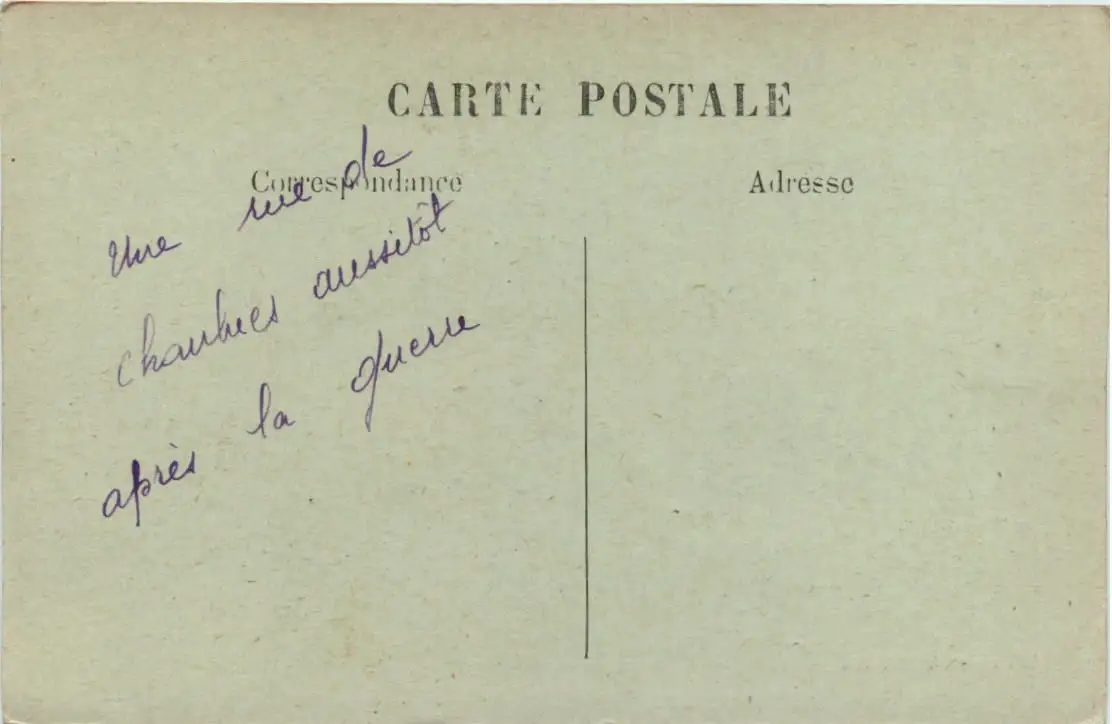 CARTE POSTALE
Correspondance
Adresse
Une rue de
chaulnes aussitôt
après la guerre